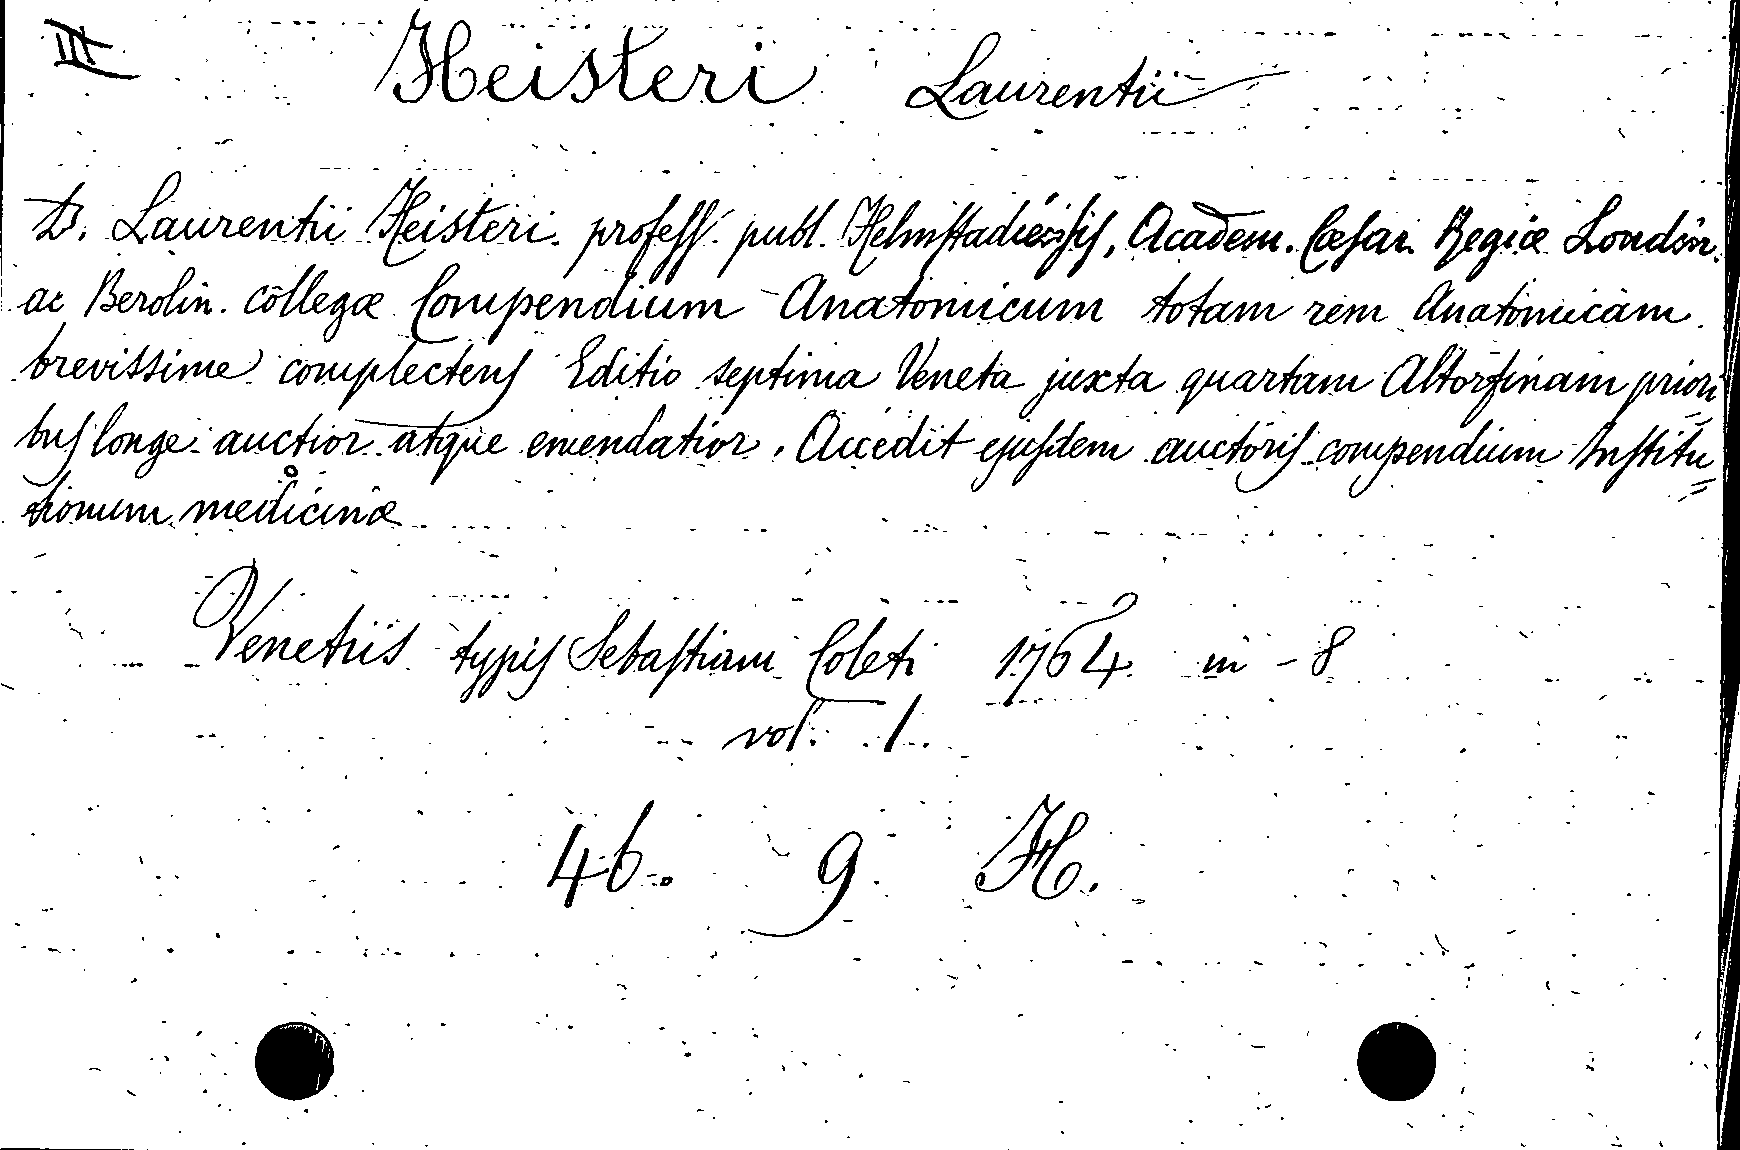 III Heisteri Laurentii
D. Laurentii Heisteri. profeſſ. publ. Helmſtadiēnſiſ, Academ. Cæſar. Regiæ Londin.
ac Berolin. collegæ Compendium Anatomicum totam rem Anatomicam
brevissime complectenſ Editio septima Veneta juxta quartam Altorfinam priori
buſ longe auctior atque emendatior. Accedit ejuſdem auctoriſ compendium Inſtitu=
tionum medicinæ
Venetiis typiſ Sebaſtiani Coleti 1764 in - 8
vol. 1.
46. 9 H.